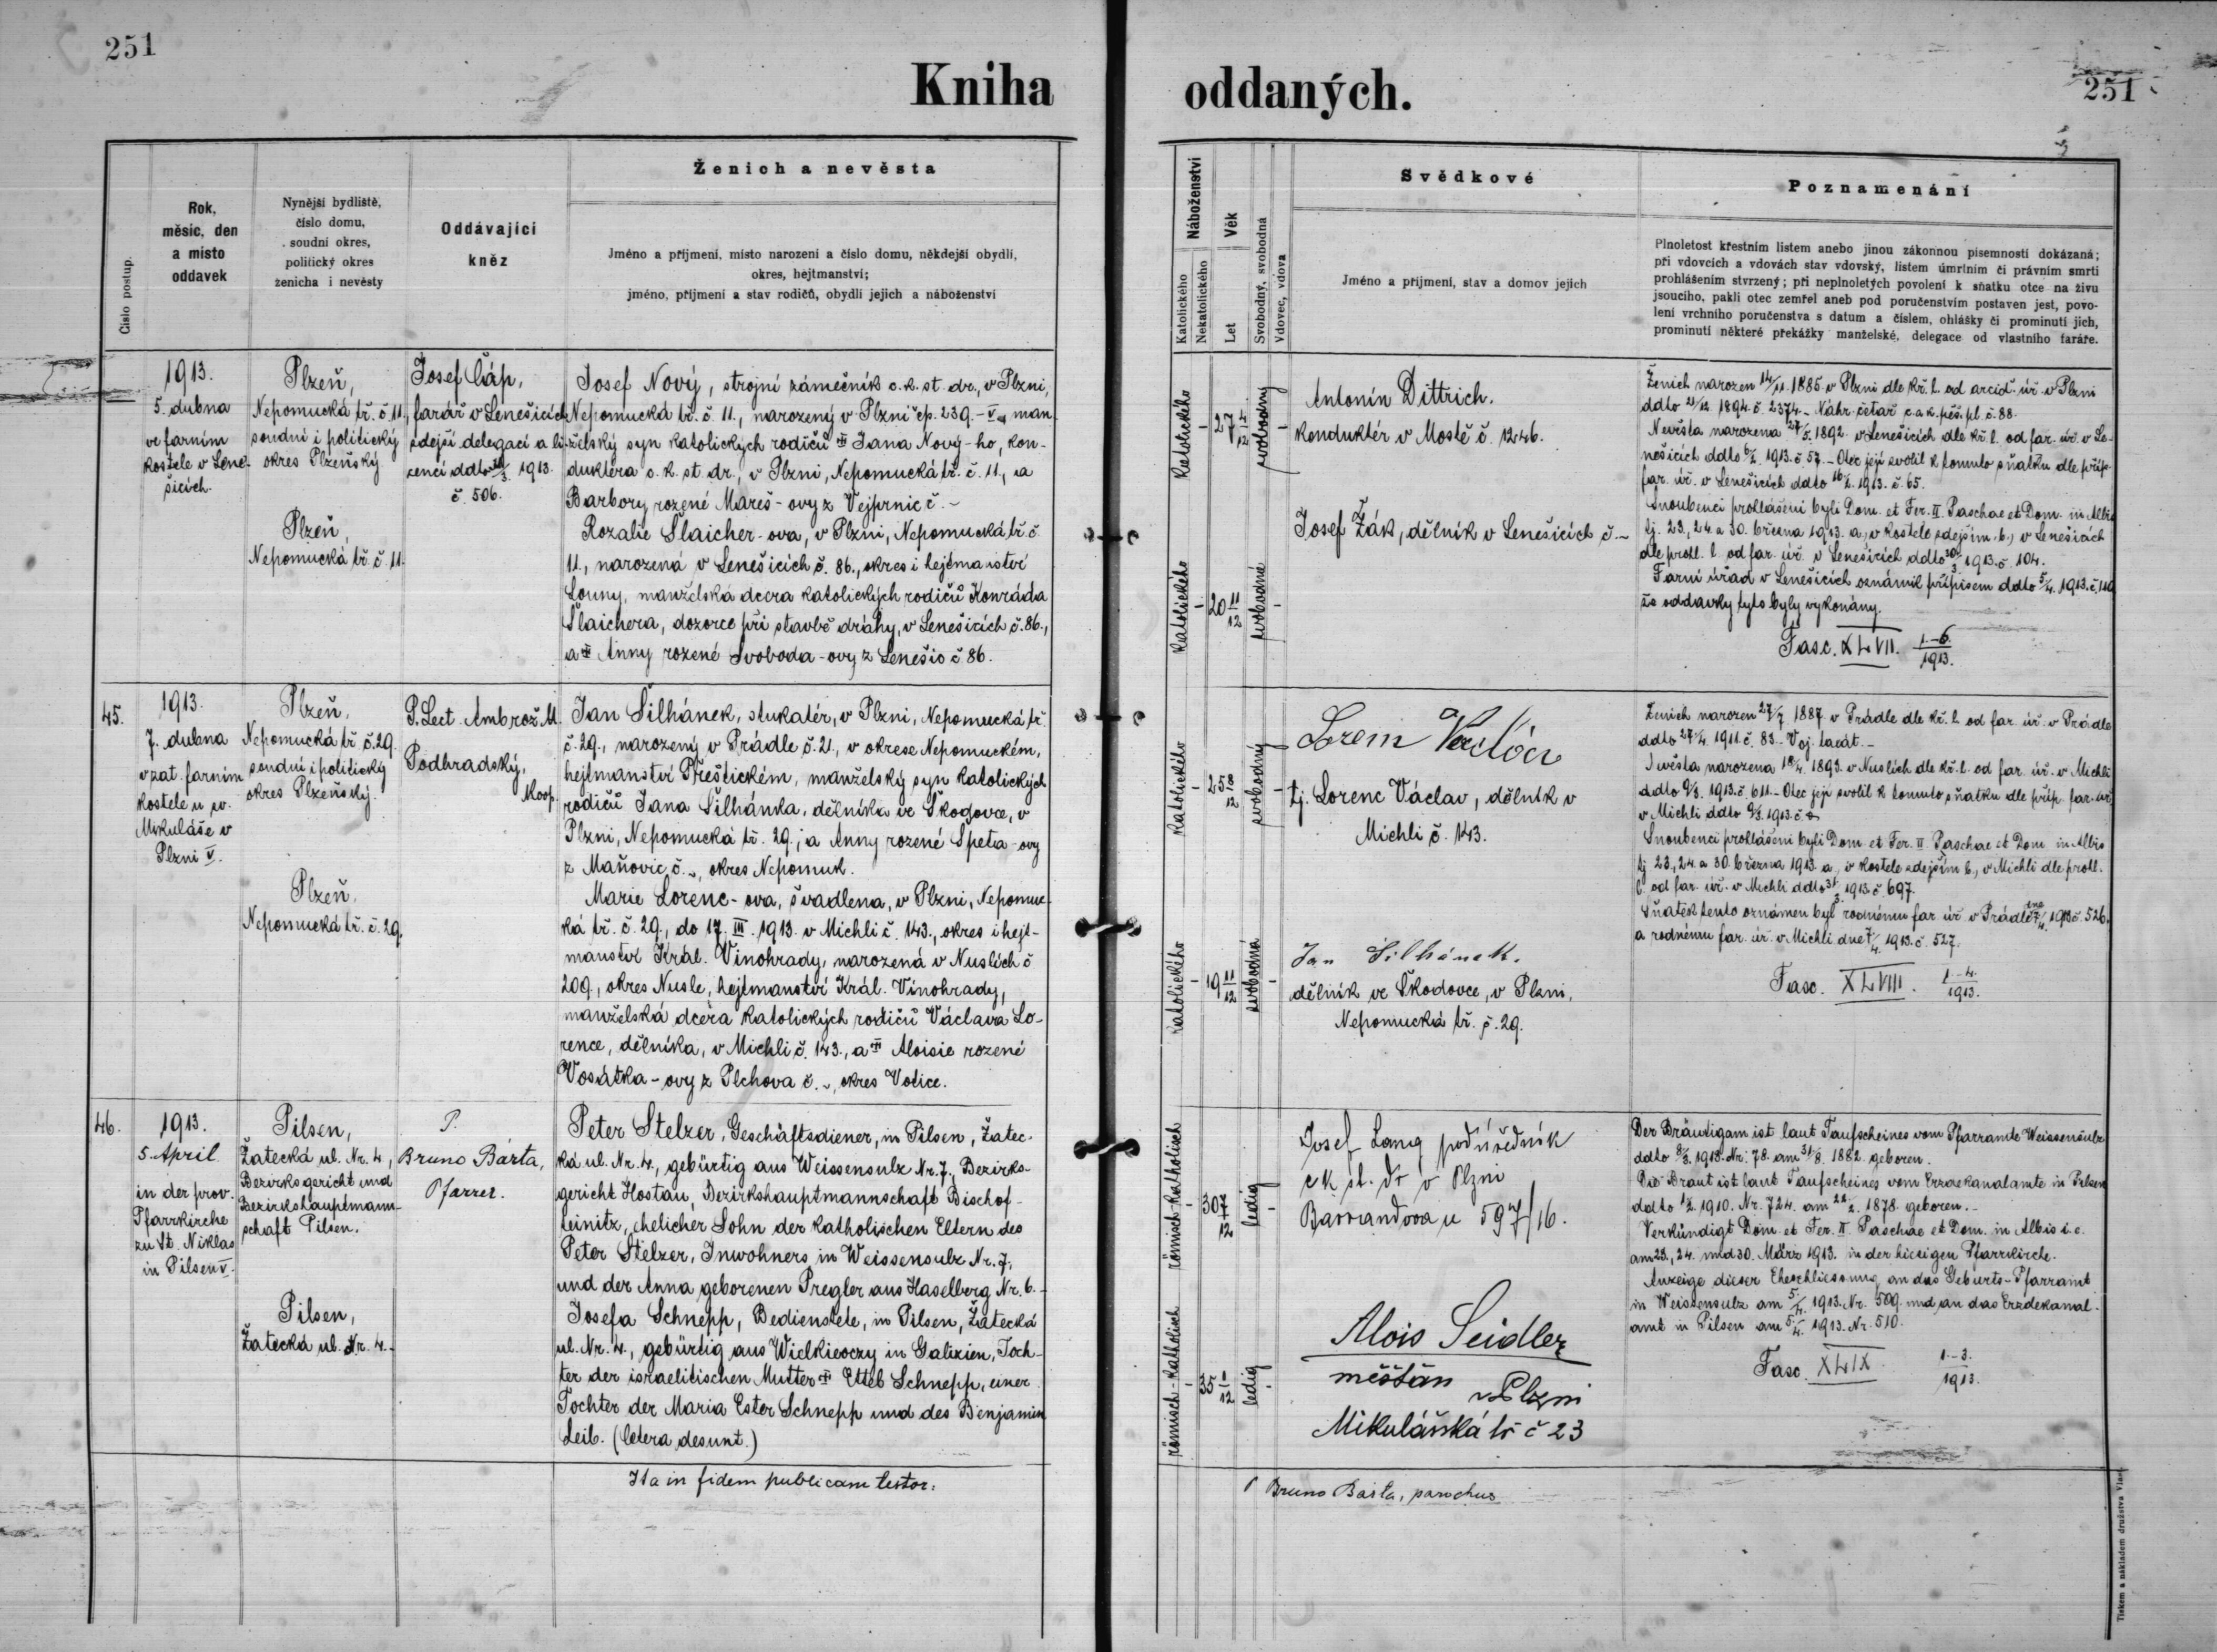 251
Kniha
oddaných.
251
Číslo postup.
Rok,
měsíc, den
a místo
oddavek
Nynější bydliště,
číslo domu,
soudní okres,
politický okres
ženicha i nevěsty
Oddávající
kněz
Ženich a nevěsta
Jméno a příjmení, místo narození a číslo domu, někdejší obydlí,
okres, hejtmanství;
jméno, příjmení a stav rodičů, obydlí jejich a náboženství
Náboženství
Katolického
Nekatolického
Věk
Let
Svobodný, svobodná
Vdovec, vdova
Svědkové
Jméno a příjmení, stav a domov jejich
Poznamenání
Plnoletost křestním listem anebo jinou zákonnou písemností dokázaná;
při vdovcích a vdovách stav vdovský, listem úmrtním či právním smrti
prohlášením stvrzený; při neplnoletých povolení k sňatku otce na živu
jsoucího, pakli otec zemřel aneb pod poručenstvím postaven jest, povo-
lení vrchního poručenstva s datum a číslem, ohlášky či prominutí jich,
prominutí některé překážky manželské, delegace od vlastního faráře.
1913.
5. dubna
ve farním
kostele v Lene-
šicích.
Plzeň,
Nepomucká tř. č. 11.,
soudní i politický
okres Plzeňský
Plzeň,
Nepomucká tř. č. 11.
Josef Čáp,
farář v Lenešicích
zdejší delegací a li-
cencí ddto 1913.
č. 506.
Josef Nový, strojní zámečník c. k. st. dr., v Plzni,
Nepomucká tř. č. 11., narozený v Plzni čp. 239.-V., man-
želský syn katolických rodičů Jana Nový-ho, kon-
duktéra c. k. st. dr., v Plzni, Nepomucká tř. č. 11., a
Barbory rozené Mareš-ovy z Vejprnic č. –
Rozalie Šlaicher-ova, v Plzni, Nepomucká tř. č.
11., narozená v Lenešicích č. 86., okres i hejtmanství
Louny, manželská dcera katolických rodičů Konráda
Šlaichera, dozorce při stavbě dráhy, v Lenešicích č. 86.,
a Anny rozené Svoboda-ovy z Lenešic č 86.
Katolického
27
svobodný
Katolického
20 11/12
svobodná
Antonín Dittrich.
konduktér v Mostě č. 1246.
Josef Žák, dělník v Lenešicích č. –
Ženich narozen 14/11. 1885. v Plzni dle kř. l. od arcid. úř. v Plzni
ddto 21/12. 1894. č. 2374. – Náhr. četař c. a k. pěš. pl. č. 88.
Nevěsta narozena 27/5. 1892. v Lenešicích dle kř. l. od far. úř. v Le-
nešicích ddto 6/2. 1913. č. 57. – Otec její svolil k tomuto sňatku dle příp.
far. úř. v Lenešicích ddto 16/2. 1913. č. 65.
Snoubenci prohlášeni byli Dom. et Fer. II. Paschae et Dom. in Albis
tj. 23., 24. a 30. března 1913. a., v kostele zdejším. b., v Lenešicích
dle prohl. l. od far. úř. v Lenešicích ddto 30/3. 1913. č. 104.
Farní úřad v Lenešicích oznámil přípisem ddto 5/4. 1913. č. 110
že oddavky tyto byly vykonány.
Fasc. XLVII. 1–6/1913.
45.
1913.
7. dubna
v zat. farním
kostele u sv.
Mikuláše v
Plzni V.
Plzeň,
Nepomucká tř. č. 29.
soudní i politický
okres Plzeňský.
Plzeň,
Nepomucká tř. č. 29.
P. Lect. Ambrož M.
Podhradský,
Koop.
Jan Šilhánek, štukatér, v Plzni, Nepomucká tř.
č. 29., narozený v Prádle č. 21., v okrese Nepomuckém,
hejtmanství Přeštickém, manželský syn katolických
rodičů Jana Šilhánka, dělníka ve Škodovce, v
Plzni, Nepomucká tř. 29.; a Anny rozené Špeta-ovy
z Maňovic č. –, okres Nepomuk.
Marie Lorenc-ova, švadlena, v Plzni, Nepomuc-
ká tř. č. 29., do 17. III. 1913. v Michli č. 143., okres i hejt-
manství Král. Vinohrady, narozená v Nuslích č
209., okres Nusle, hejtmanství Král. Vinohrady,
manželská dcera katolických rodičů Václava Lo-
rence, dělníka, v Michli č. 143., a Aloisie rozené
Vosátka-ovy z Plchova č. –, okres Votice.
Katolického
25 8/12
svobodný
Katolického
19 11/12
svobodná
Lorenc Václav
tj. Lorenc Václav, dělník v
Michli č. 143.
Jan Šilhánek.
dělník ve Škodovce, v Plzni,
Nepomucká tř. č. 29.
Ženich narozen 27/7. 1887. v Prádle dle kř. l. od far. úř. v Prádle
ddto 27/4. 1911. č. 83. – Voj. taxát. –
Nevěsta narozena 18/4. 1893. v Nuslích dle kř. l. od far. úř. v Michli
ddto 9/3. 1913. č. 611. – Otec její svolil k tomuto sňatku dle příp. far. úř.
v Michli ddto 9/3. 1913. č.
Snoubenci prohlášeni byli Dom. et Fer. II. Paschae et Dom. in Albis
tj. 23., 24. a 30. března 1913. a., v kostele zdejším b., v Michli dle prohl.
l. od far. úř. v Michli ddto 31/3. 1913. č. 697.
Sňatek tento oznámen byl rodnému far. úř. v Prádle dne 7/4. 1913. č. 526.
a rodnému far. úř. v Michli dne 7/4. 1913. č. 527.
Fasc. XLVIII. 1–4./1913.
46.
1913.
5. April
in der prov.
Pfarrkirche
zu St. Niklas
in Pilsen V.
Pilsen,
Žatecká ul. Nr. 4.,
Bezirksgericht und
Bezirkshauptmann-
schaft Pilsen.
Pilsen,
Žatecká ul. Nr. 4. –
P.
Bruno Bárta,
Pfarrer.
Peter Stelzer, Geschäftsdiener, in Pilsen, Žatec-
ká ul. Nr. 4., gebürtig aus Weissensulz Nr. 7., Bezirks-
gericht Hostau, Bezirkshauptmannschaft Bischof-
teinitz, ehelicher Sohn der katholischen Eltern des
Peter Stelzer, Inwohners in Weissensulz Nr. 7,
und der Anna geborenen Pregler aus Haselberg Nr. 6. –
Josefa Schnepp, Bedienstete, in Pilsen, Žatecká
ul. Nr. 4., gebürtig aus Wielkieoczy in Galizien, Toch-
ter der israelitischen Mutter Etteb Schnepp, einer
Tochter der Maria Ester Schnepp und des Benjamin
Leib. (Cetera desunt.)
römisch-katholisch
30 7/12
ledig
römisch-katholisch
35 1/12
ledig
Josef Lang podúředník
c k st. dr v Plzni
Barrandova u 597/16.
Alois Seidler
měšťan
v Plzni
Mikulášská tř č 23
Der Bräutigam ist laut Taufscheines vom Pfarramte Weissensulz
ddto 8/3. 1913. Nr. 78. am 31/8. 1882. geboren.
Die Braut ist laut Taufscheines vom Erzdekanalamte in Pilsen
ddto 1/2. 1910. Nr. 724. am 22/2. 1878. geboren. –
Verkündigt Dom. et Fer. II. Paschae et Dom. in Albis i. e.
am 23., 24. und 30. März 1913. in der hiesigen Pfarrkirche.
Anzeige dieser Eheschliessung an das Geburts-Pfarramt
in Weissensulz am 5/4. 1913. Nr. 509. und an das Erzdekanal-
amt in Pilsen am 5/4. 1913. Nr. 510.
Fasc. XLIX. 1–3./1913.
Ita in fidem publicam testor:
P Bruno Bárta, parochus
Tiskem a nákladem družstva Vlast.